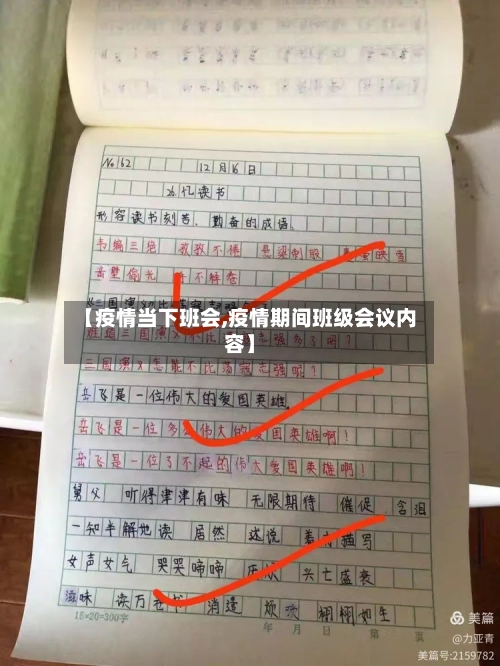 No 62 12月16日
26忆读书
形容读书刻苦、勤奋的成语。
韦编三绝 孜孜不倦 悬梁刺股 映雪
凿壁偷光 手不释卷
【疫情当下班会,疫情期间班级会议内
容】
三国演义
岳飞是一位伟大的爱国英雄。
岳飞是一位多么伟大的爱国英雄啊!
岳飞是一位了不起的伟大爱国英雄啊!
舅父 听得津津有味 无限期待 催促 含泪
一知半解地读 居然 述说 描写
女声女气 哭哭啼啼 兴亡盛衰
滋味 读万卷书 消遣 烦 栩栩如生
15×20=300字
年 月 日 第 页
美篇
@力亚青
美篇号:2159782